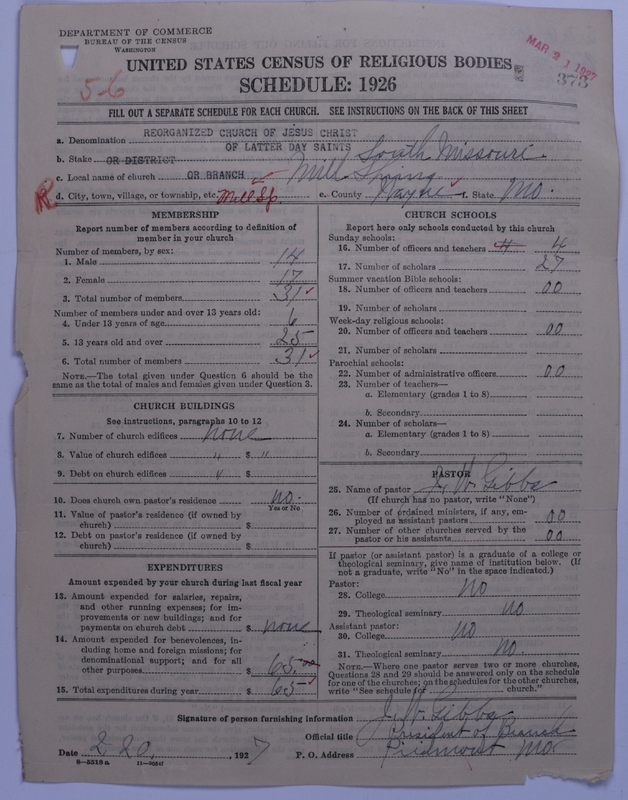 DEPARTMENT OF COMMERCE
BUREAU OF THE CENSUS
WASHINGTON
MAR 21 1927
373
56
UNITED STATES CENSUS OF RELIGIOUS BODIES
SCHEDULE: 1926
FILL OUT A SEPARATE SCHEDULE FOR EACH CHURCH. SEE INSTRUCTIONS ON THE BACK OF THIS SHEET
a. Denomination REORGANIZED CHURCH OF JESUS CHRIST
OF LATTER DAY SAINTS
b. Stake OR DISTRICT South Missouri
c. Local name of church OR BRANCH Mill Spring
R d. City, town, village, or township, etc. Mill Sp. e. County Wayne f. State Mo.
MEMBERSHIP
Report number of members according to definition of
member in your church
Number of members, by sex:
1. Male 14
2. Female 17
3. Total number of members 31
Number of members under and over 13 years old:
4. Under 13 years of age 6
5. 13 years old and over 25
6. Total number of members 31
NOTE.—The total given under Question 6 should be the
same as the total of males and females given under Question 3.
CHURCH BUILDINGS
See instructions, paragraphs 10 to 12
7. Number of church edifices none
8. Value of church edifices " $ "
9. Debt on church edifices " $
10. Does church own pastor's residence no.
Yes or No
11. Value of pastor's residence (if owned by
church) $
12. Debt on pastor's residence (if owned by
church) $
EXPENDITURES
Amount expended by your church during last fiscal year
13. Amount expended for salaries, repairs,
and other running expenses; for im-
provements or new buildings; and for
payments on church debt $ none
14. Amount expended for benevolences, in-
cluding home and foreign missions; for
denominational support; and for all
other purposes $ 65.00
15. Total expenditures during year $ 65
CHURCH SCHOOLS
Report here only schools conducted by this church
Sunday schools:
16. Number of officers and teachers 4 4
17. Number of scholars 27
Summer vacation Bible schools:
18. Number of officers and teachers 00
19. Number of scholars
Week-day religious schools:
20. Number of officers and teachers 00
21. Number of scholars
Parochial schools:
22. Number of administrative officers 00
23. Number of teachers—
a. Elementary (grades 1 to 8)
b. Secondary
24. Number of scholars—
a. Elementary (grades 1 to 8)
b. Secondary
PASTOR
25. Name of pastor J. W. Gibbs
(If church has no pastor, write "None")
26. Number of ordained ministers, if any, em-
ployed as assistant pastors 00
27. Number of other churches served by the
pastor or his assistants 00
If pastor (or assistant pastor) is a graduate of a college or
theological seminary, give name of institution below. (If
not a graduate, write "No" in the space indicated.)
Pastor:
28. College No
29. Theological seminary no
Assistant pastor:
30. College No
31. Theological seminary No.
NOTE.—Where one pastor serves two or more churches,
Questions 28 and 29 should be answered only on the schedule
for one of the churches; on the schedules for the other churches,
write "See schedule for church."
Signature of person furnishing information J. W. Gibbs
Official title President of Branch
Date 2 20, 1927 P. O. Address Piedmont Mo.
8—5518 a